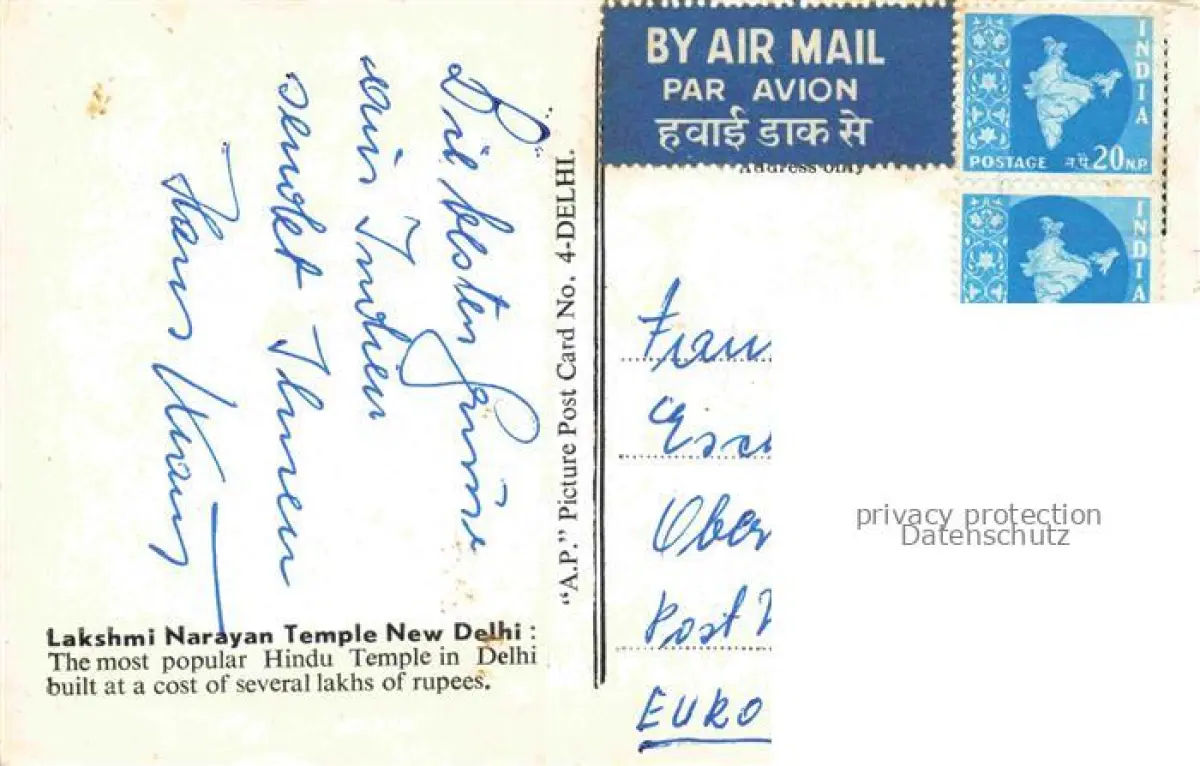 BY AIR MAIL
PAR AVION
हवाई डाक से
INDIA
POSTAGE न.पै. 20 N.P.
INDIA
Address only
Die besten Grüße
aus Indien
sendet Ihnen
Hans
"A.P." Picture Post Card No. 4-DELHI.
Frau
Ober
Post
EURO
privacy protection
Datenschutz
Lakshmi Narayan Temple New Delhi :
The most popular Hindu Temple in Delhi
built at a cost of several lakhs of rupees.